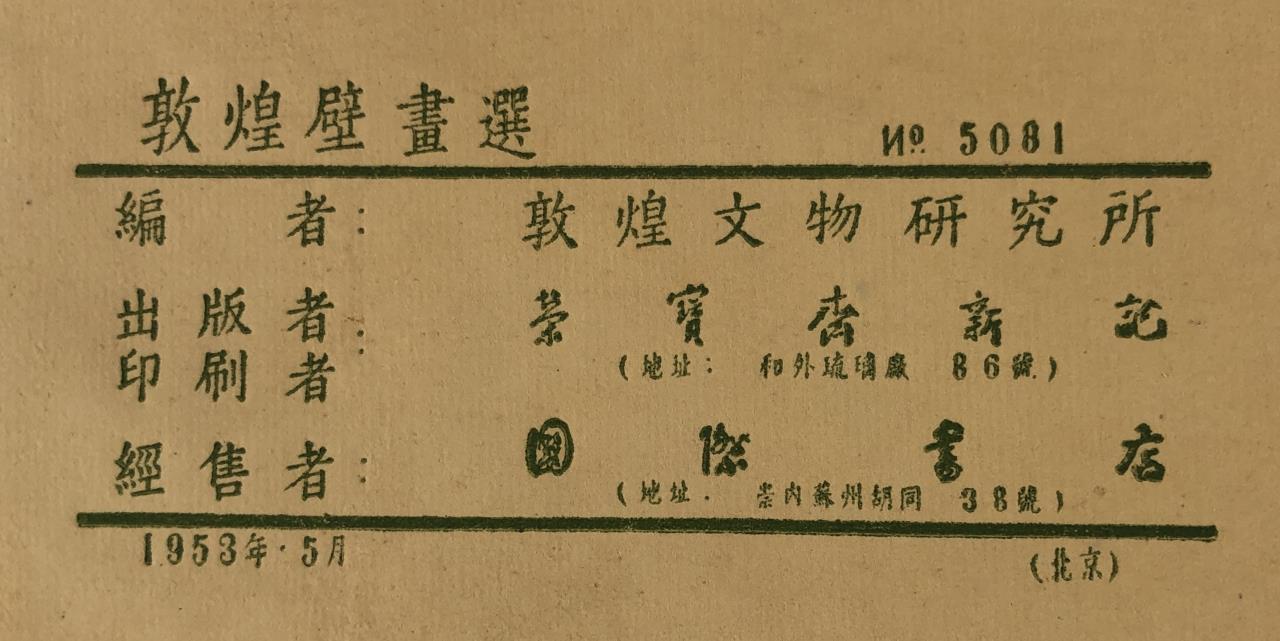 敦煌壁畫選 No 5081
編者: 敦煌文物研究所
出版者
印刷者: 榮寶齋新記
(地址: 和外琉璃廠 86號)
經售者: 國際書店
(地址. 崇內蘇州胡同 38號)
1953年·5月 (北京)